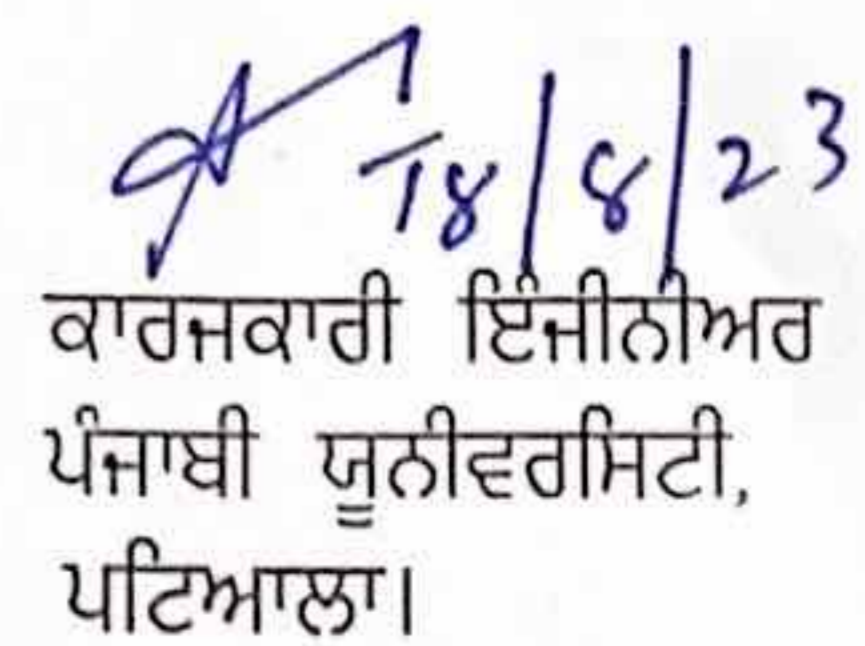 18/8/23
ਕਾਰਜਕਾਰੀ ਇੰਜੀਨੀਅਰ
ਪੰਜਾਬੀ ਯੂਨੀਵਰਸਿਟੀ,
ਪਟਿਆਲਾ।